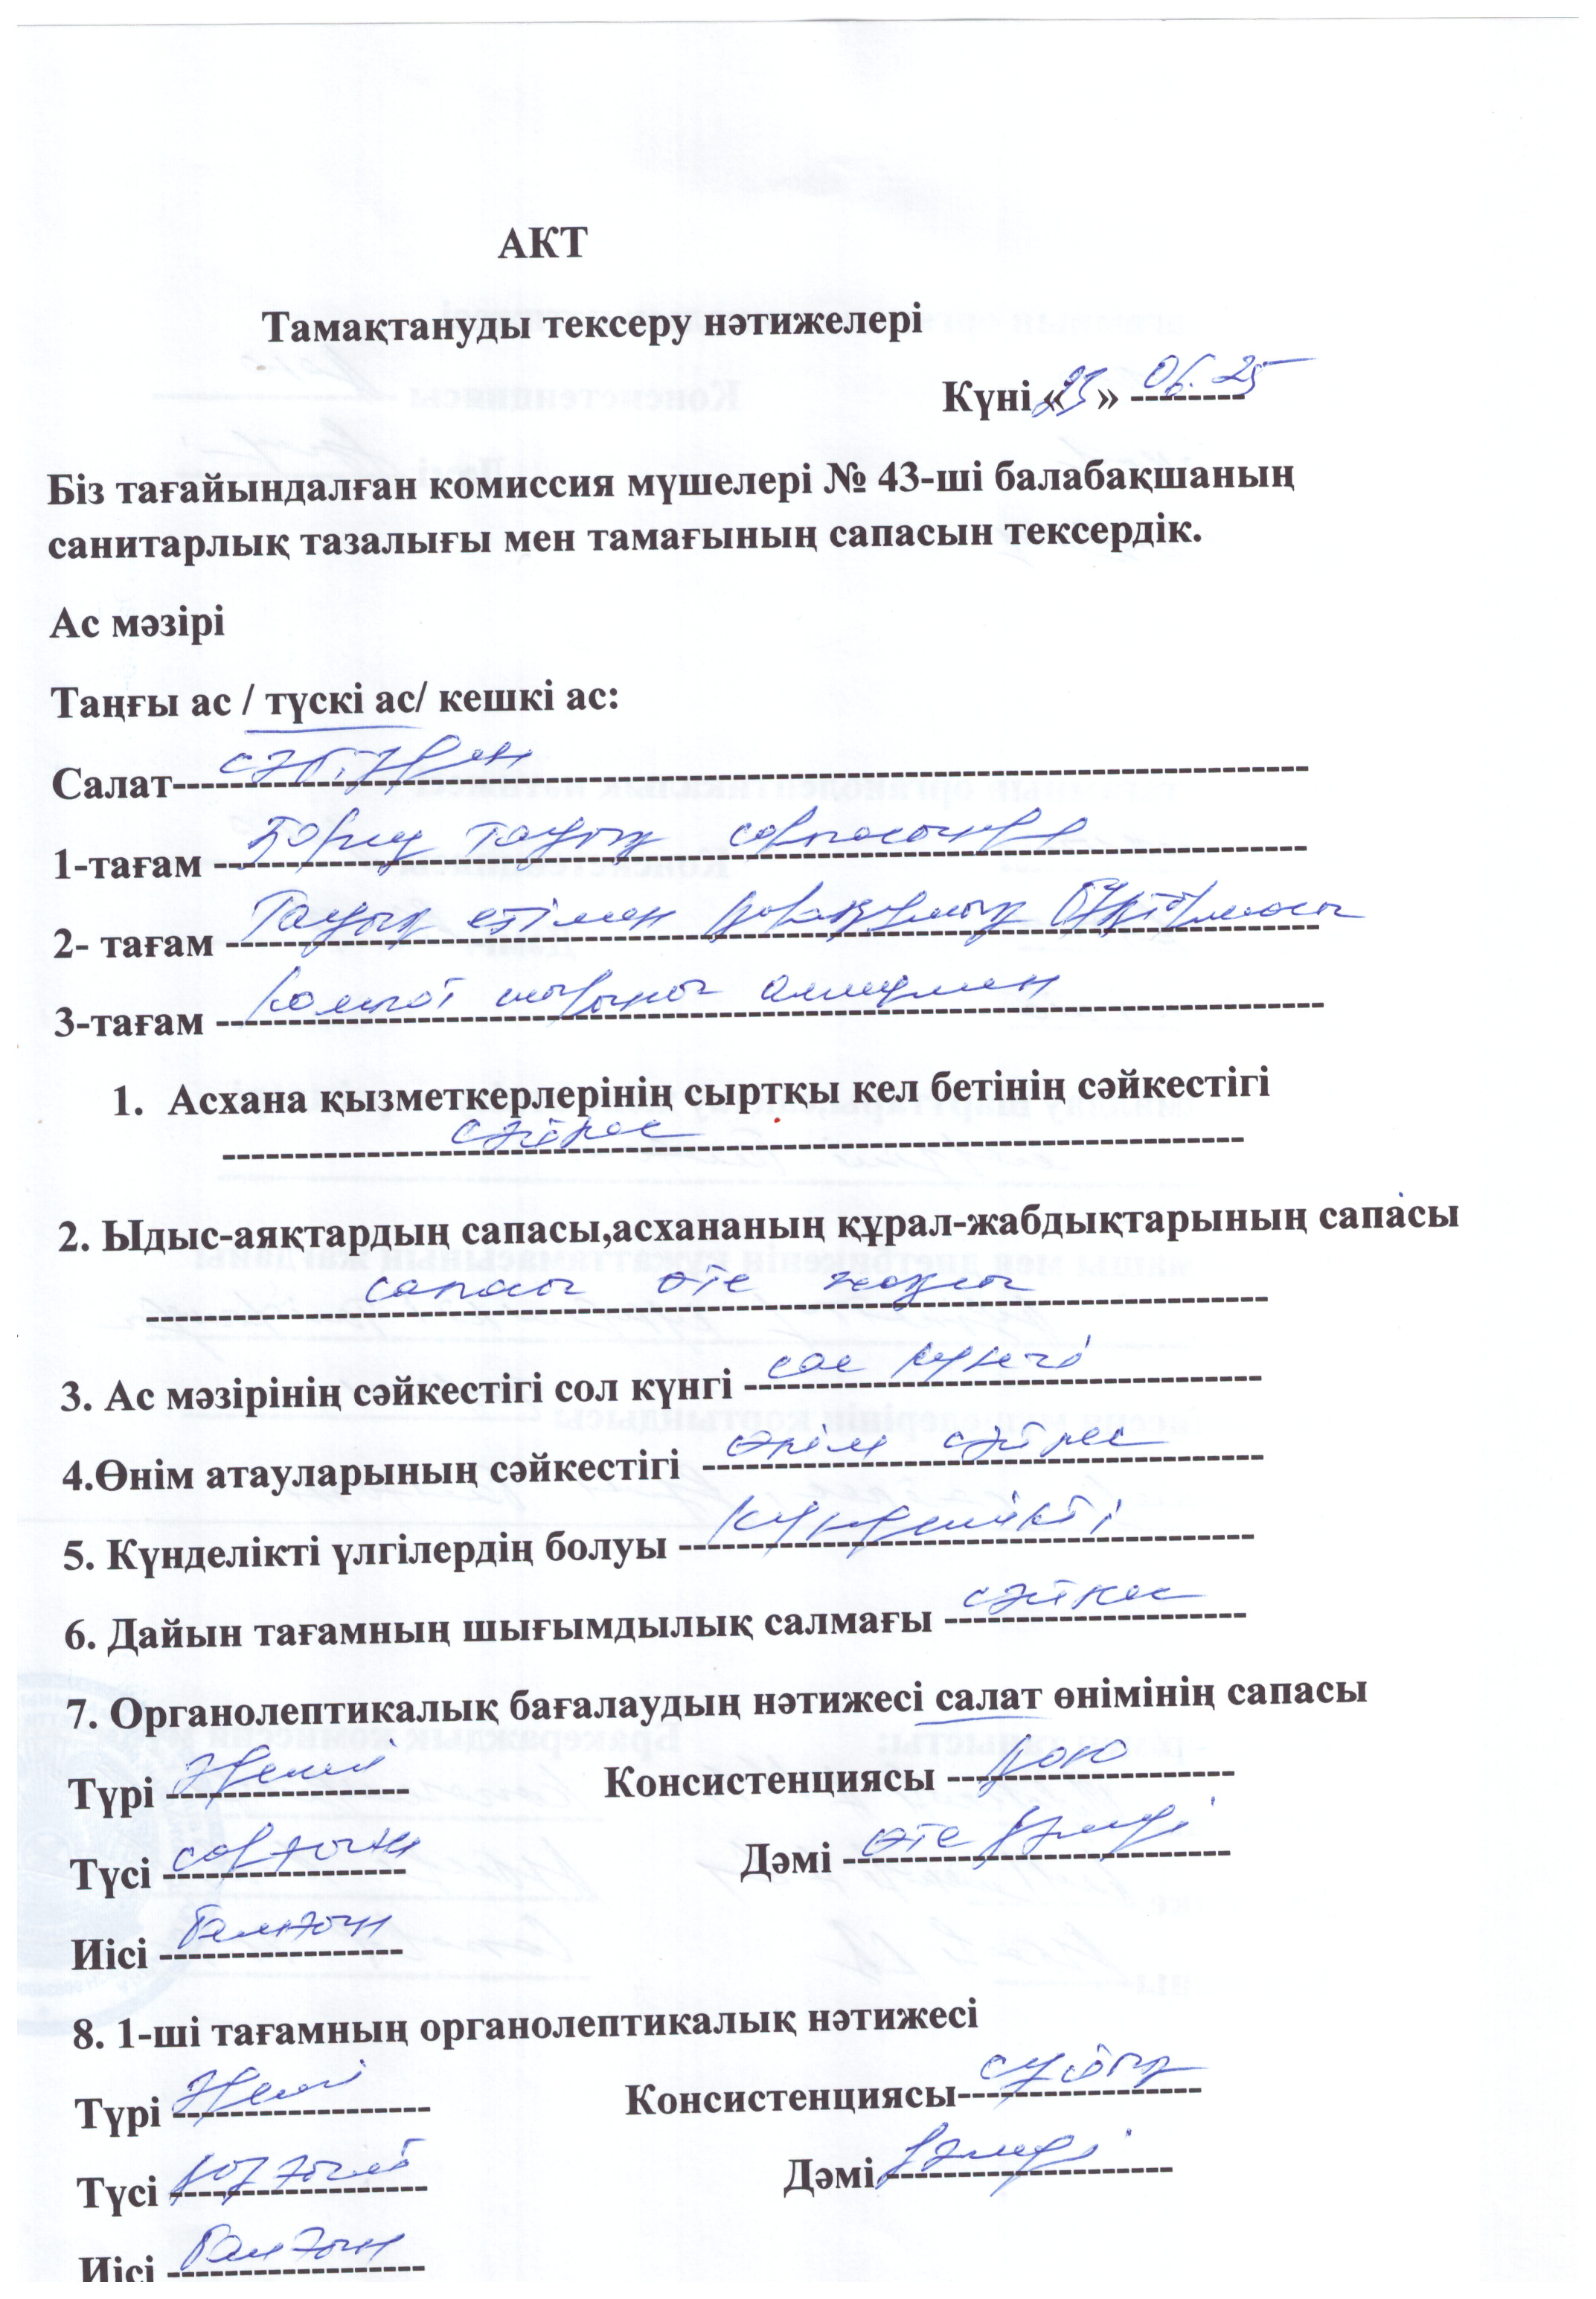 АКТ
Тамақтануды тексеру нәтижелері
Күні «23» 06.25
Біз тағайындалған комиссия мүшелері № 43-ші балабақшаның
санитарлық тазалығы мен тамағының сапасын тексердік.
Ас мәзірі
Таңғы ас / түскі ас/ кешкі ас:
Салат сәбізден
1-тағам Борщ тауық сорпасында
2- тағам Тауық етімен бұқтырмасы
3-тағам Компот алмамен
1. Асхана қызметкерлерінің сыртқы кел бетінің сәйкестігі
сәйкес
2. Ыдыс-аяқтардың сапасы,асхананың құрал-жабдықтарының сапасы
сапасы өте жақсы
3. Ас мәзірінің сәйкестігі сол күнгі сол күнгі
4.Өнім атауларының сәйкестігі өнім сәйкес
5. Күнделікті үлгілердің болуы күнделікті
6. Дайын тағамның шығымдылық салмағы сәйкес
7. Органолептикалық бағалаудың нәтижесі салат өнімінің сапасы
Түрі әдемі Консистенциясы қою
Түсі Дәмі өте дәмді
Иісі
8. 1-ші тағамның органолептикалық нәтижесі
Түрі әдемі Консистенциясы сұйық
Түсі Дәмі дәмді
Иісі